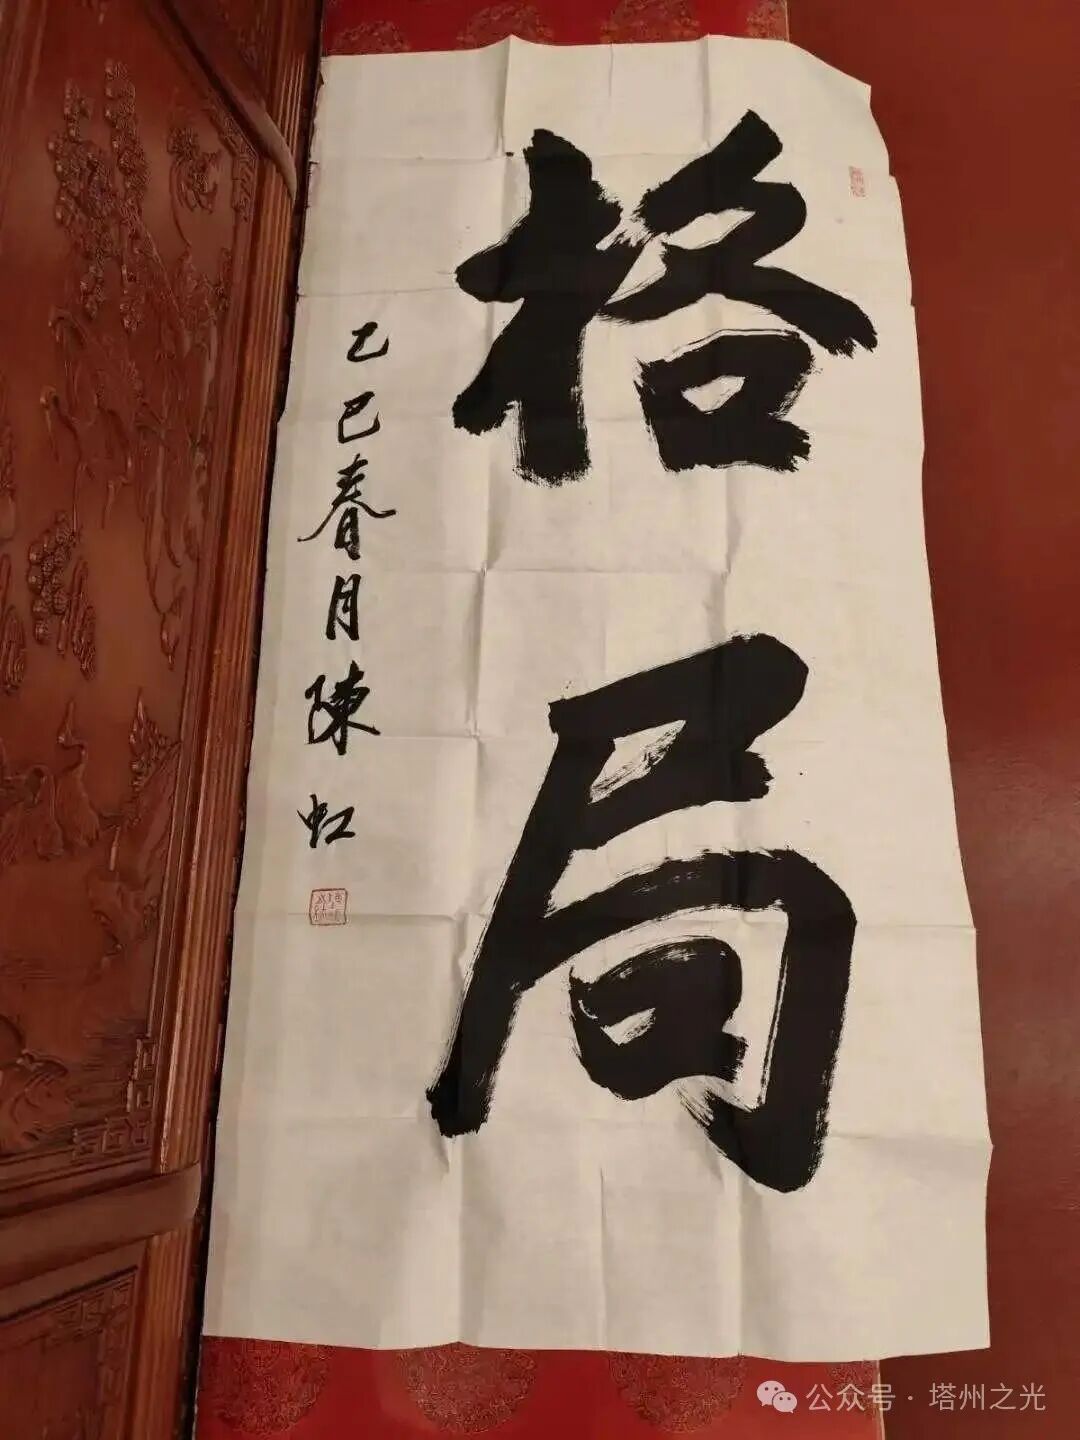 格局
乙巳春月陳虹
公众号·塔州之光